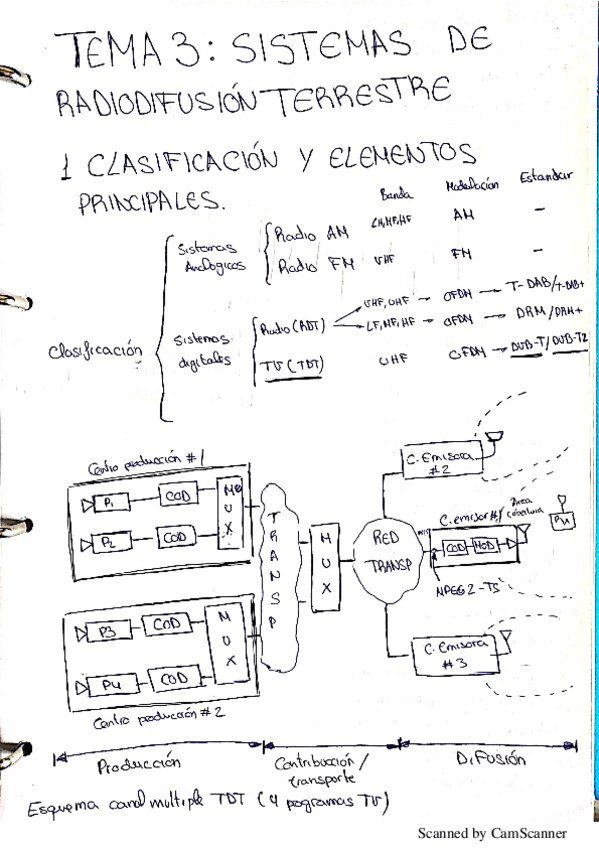 TEMA 3: SISTEMAS DE
RADIODIFUSIÓN TERRESTRE
1 CLASIFICACIÓN Y ELEMENTOS
PRINCIPALES.
Banda Modulación Estandar
Clasificación
Sistemas Analógicos
Radio AM LF,MF,HF AM -
Radio FM VHF FM -
Sistemas digitales
Radio (ADT)
VHF, UHF OFDM T-DAB/T-DAB+
LF, MF, HF OFDM DRM/DRM+
TV (TDT) UHF OFDM DVB-T/DVB-T2
Centro producción #1
P1 COD
P2 COD
MUX
Centro producción #2
P3 COD
P4 COD
MUX
TRANSP
MUX
RED
TRANSP
C. Emisora
#2
C. emisor #1
Área
cobertura
COD MOD
MPEG2-TS
C. Emisora
#3
Producción
Contribución/
transporte
Difusión
Esquema canal multiple TDT (4 programas TV)
Scanned by CamScanner